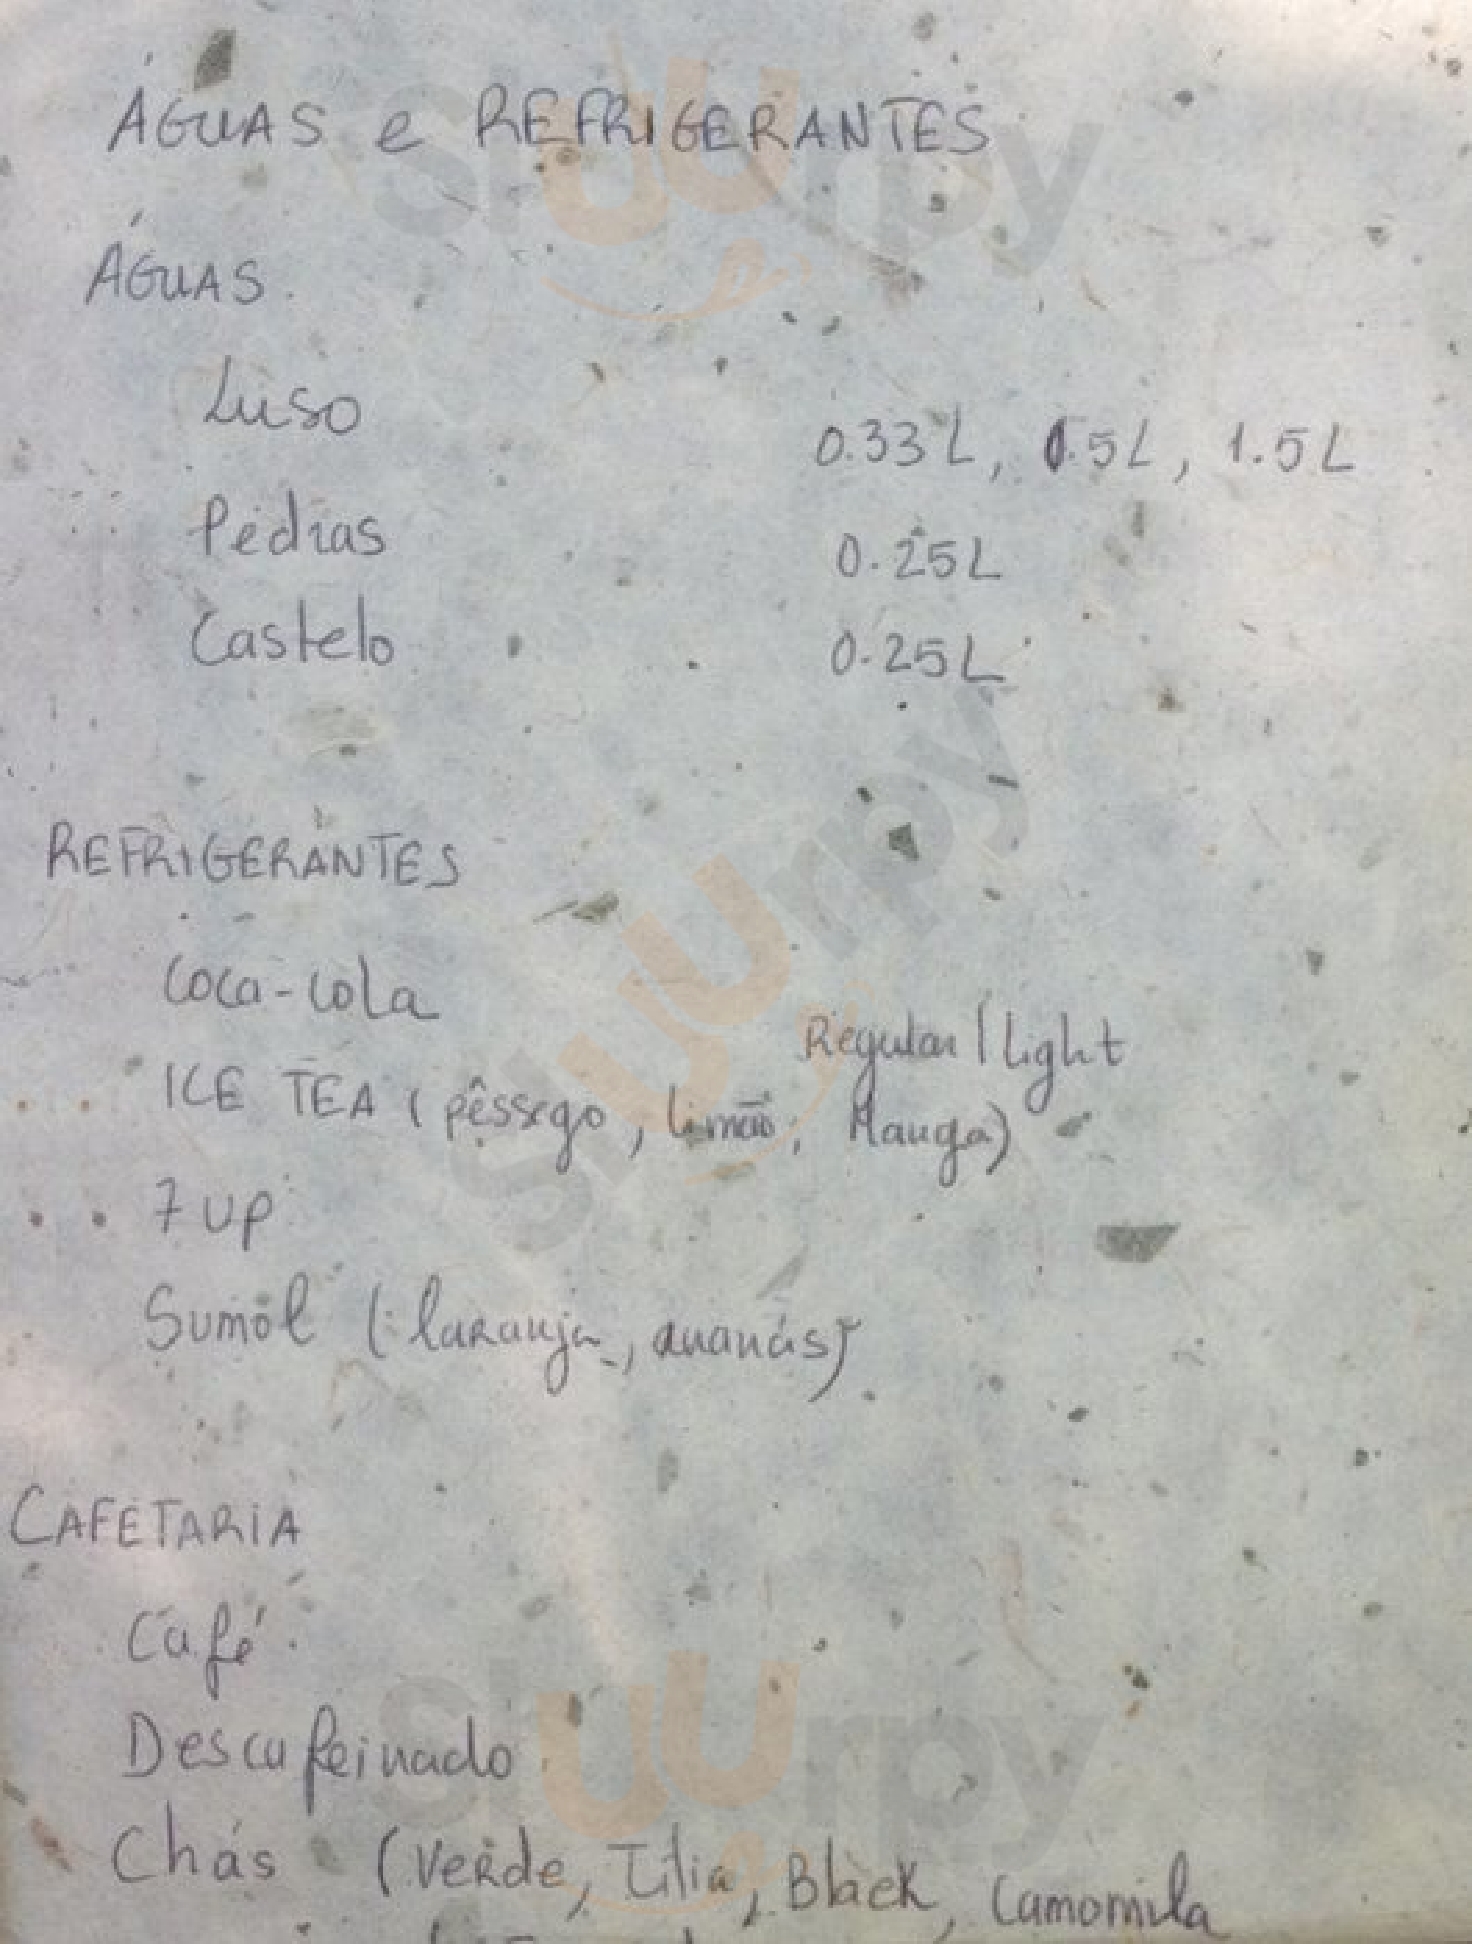 ÁGUAS e REFRIGERANTES
ÁGUAS
Luso 0.33L, 0.5L, 1.5L
Pedras 0.25L
Castelo 0.25L
REFRIGERANTES
Coca-Cola Regular/Light
ICE TEA (pêssego, limão, Manga)
7up
Sumol (laranja, ananás)
CAFETARIA
Café
Descafeinado
Chás (Verde, Tília, Black, Camomila
sluurpy
sluurpy
sluurpy